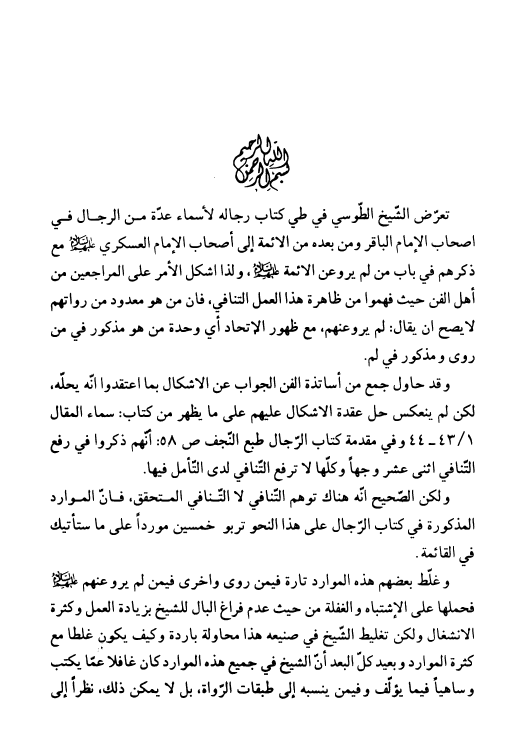 بسم الله الرحمن الرحيم
تعرّض الشّيخ الطّوسي في طي كتاب رجاله لأسماء عدّة مـن الرجـال فـي
اصحاب الإمام الباقر ومن بعده من الائمة إلى أصحاب الإمام العسكري عليهم السلام مع
ذكرهم في باب من لم يروعن الائمة عليهم السلام، ولذا اشكل الأمر على المراجعين من
أهل الفن حيث فهموا من ظاهرة هذا العمل التنافي، فان من هو معدود من رواتهم
لايصح ان يقال: لم يروعنهم، مع ظهور الإتحاد أي وحدة من هو مذكور في من
روى ومذكور في لم.
و قد حاول جمع من أساتذة الفن الجواب عن الاشكال بما اعتقدوا انّه يحلّه،
لكن لم ينعكس حل عقدة الاشكال عليهم على ما يظهر من كتاب: سماء المقال
١/ ٤٣ ـ ٤٤ وفي مقدمة كتاب الرّجال طبع النّجف ص ٥٨: أنّهم ذكروا في رفع
التّنافي اثنى عشر وجهاً وكلّها لا ترفع التّنافي لدى التّأمل فيها.
ولكن الصّحيح انّه هناك توهم التّنافي لا التّـنافي المـتحقق، فـانّ المـوارد
المذكورة في كتاب الرّجال على هذا النحو تربو خمسين مورداً على ما ستأتيك
في القائمة.
و غلّط بعضهم هذه الموارد تارة فيمن روى واخرى فيمن لم يرو عنهم عليهم السلام
فحملها على الإشتباه و الغفلة من حيث عدم فراغ البال للشيخ بزيادة العمل وكثرة
الانشغال ولكن تغليط الشّيخ في صنيعه هذا محاولة باردة وكيف يكون غلطا مع
كثرة الموارد و بعيد كلّ البعد أنّ الشيخ في جميع هذه الموارد كان غافلا عمّا يكتب
و ساهياً فيما يؤلّف وفيمن ينسبه إلى طبقات الرّواة، بل لا يمكن ذلك، نظراً إلى